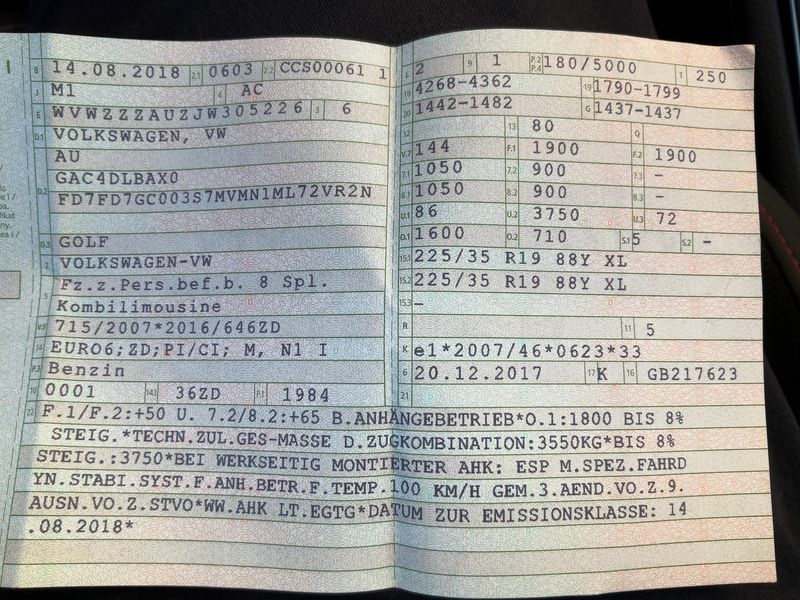 B 14.08.2018 2.1 0603 2.2 CCS00061 1
J M1 4 AC
E WVWZZZAUZJW305226 3 6
D.1 VOLKSWAGEN, VW
AU
GAC4DLBAX0
D.2 FD7FD7GC003S7MVMN1ML72VR2N
D.3 GOLF
2 VOLKSWAGEN-VW
Fz.z.Pers.bef.b. 8 Spl.
5 Kombilimousine
V.9 715/2007*2016/646ZD
14 EURO6;ZD;PI/CI; M, N1 I
P.3 Benzin
10 0001 14.1 36ZD P.1 1984
L 2 9 1 P.2 P.4 180/5000 T 250
18 4268-4362 19 1790-1799
20 1442-1482 G 1437-1437
12 13 80 Q
V.7 144 F.1 1900 F.2 1900
7.1 1050 7.2 900 7.3 -
8.1 1050 8.2 900 8.3 -
U.1 86 U.2 3750 U.3 72
O.1 1600 O.2 710 S.1 5 S.2 -
15.1 225/35 R19 88Y XL
15.2 225/35 R19 88Y XL
15.3 -
R 11 5
K e1*2007/46*0623*33
6 20.12.2017 17 K 16 GB217623
21
22 F.1/F.2:+50 U. 7.2/8.2:+65 B.ANHÄNGEBETRIEB*O.1:1800 BIS 8%
STEIG.*TECHN.ZUL.GES-MASSE D.ZUGKOMBINATION:3550KG*BIS 8%
STEIG.:3750*BEI WERKSEITIG MONTIERTER AHK: ESP M.SPEZ.FAHRD
YN.STABI.SYST.F.ANH.BETR.F.TEMP.100 KM/H GEM.3.AEND.VO.Z.9.
AUSN.VO.Z.STVO*WW.AHK LT.EGTG*DATUM ZUR EMISSIONSKLASSE: 14
.08.2018*